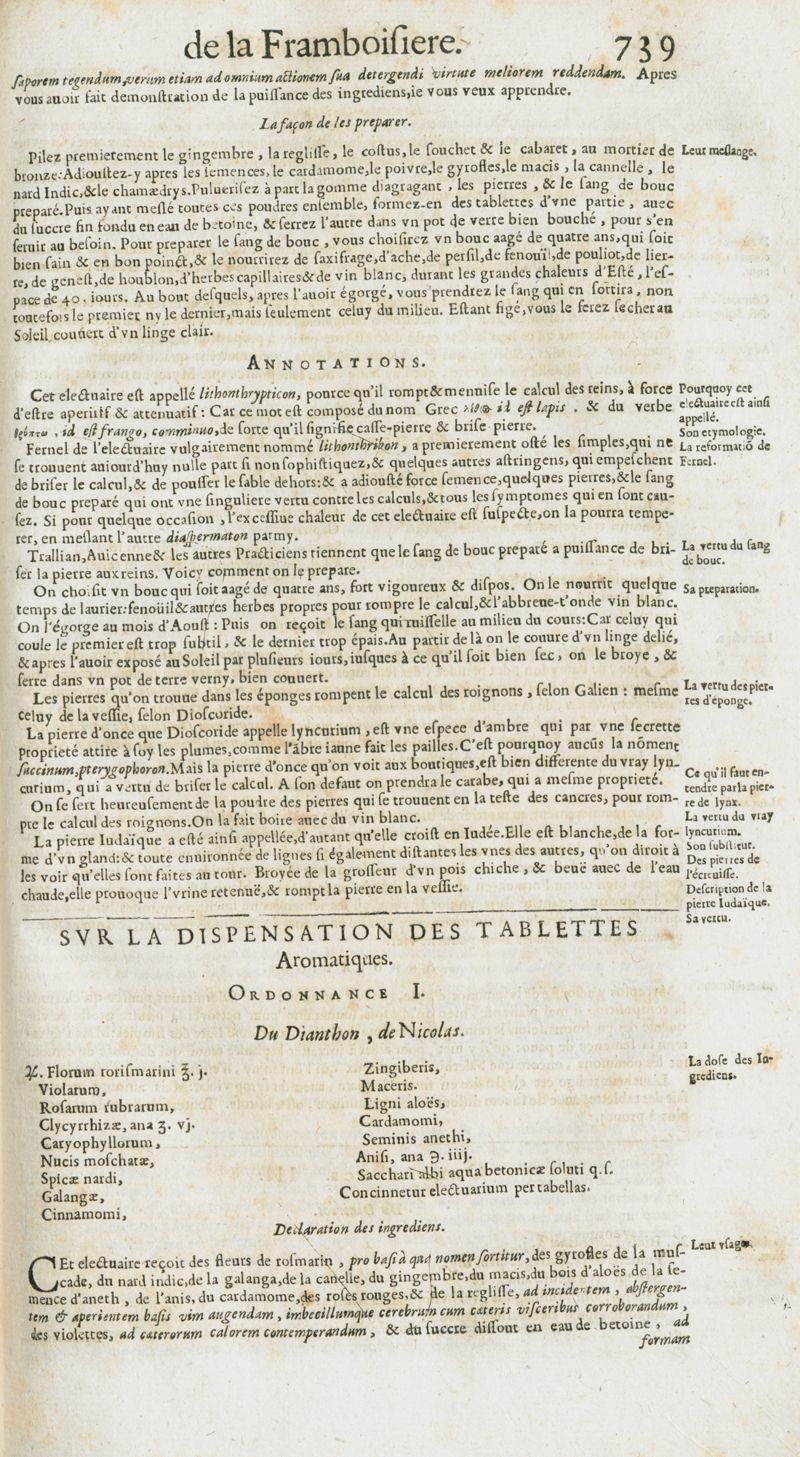 de la Framboiſiere. 739
ſaporem tegendum, verum etiam ad omnium actionem ſua detergendi virtute meliorem reddendam. Apres
vous auoir fait demonſtration de la puiſſance des ingrediens, ie vous veux apprendre.
La façon de les preparer.
Pilez premierement le gingembre, la regliſſe, le coſtus, le ſouchet & le cabaret, au mortier de
Leur meſlange.
bronze: Adiouſtez-y apres les ſemences, le cardamome, le poivre, le gyrofles, le macis, la cannelle, le
nard Indic, & le chamædrys. Puluerifez à part la gomme diagragant, les pierres, & le ſang de bouc
preparé. Puis ayant meſlé toutes ces poudres enſemble, formez-en des tablettes d'vne partie, auec
du ſuccre fin fondu en eau de betoine, & ſerrez l'autre dans vn pot de verre bien bouché, pour s'en
ſeruir au beſoin. Pour preparer le ſang de bouc, vous choiſirez vn bouc aagé de quatre ans, qui ſoit
bien ſain & en bon poinct, & le nourrirez de ſaxifrage, d'ache, de perſil, de fenouïl, de pouliot, de lier-
re, de geneſt, de houblon, d'herbes capillaires & de vin blanc, durant les grandes chaleurs d'Eſté, l'eſ-
pace de 40. iours. Au bout deſquels, apres l'auoir égorgé, vous prendrez le ſang qui en ſortira, non
toutefois le premier ny le dernier, mais ſeulement celuy du milieu. Eſtant figé, vous le ferez ſecher au
Soleil, couuert d'vn linge clair.
ANNOTATIONS.
Cet electuaire eſt appellé lithonthrypticon, pource qu'il rompt & mennife le calcul des reins, à force
Pourquoy cet
d'eſtre aperitif & attenuatif: Car ce mot eſt compoſé du nom Grec λίθος id eſt lapis. & du verbe
electuaire eſt ainſi
appellé.
θρύπτω, id eſt frango, comminuo, de ſorte qu'il ſignifie caſſe-pierre & briſe pierre.
Son etymologie.
Fernel de l'electuaire vulgairement nommé lithonthribon, a premierement oſté les ſimples, qui ne
La reformatiō de
ſe trouuent auiourd'huy nulle part ſi non ſophiſtiquez, & quelques autres aſtringens, qui empeſchent
Fernel.
de briſer le calcul, & de pouſſer le ſable dehors: & a adiouſté force ſemence, quelques pierres, & le ſang
de bouc preparé qui ont vne ſinguliere vertu contre les calculs, & tous les ſymptomes qui en ſont cau-
ſez. Si pour quelque occaſion, l'exceſſiue chaleur de cet electuaire eſt ſuſpecte, on la pourra tempe-
rer, en meſlant l'autre diaſpermaton parmy.
Trallian, Auicenne & les autres Practiciens tiennent que le ſang de bouc preparé a puiſſance de bri-
La vertu du ſang
de bouc.
ſer la pierre aux reins. Voicy comment on le prepare.
On choiſit vn bouc qui ſoit aagé de quatre ans, fort vigoureux & diſpos. On le nourrit quelque
Sa preparation.
temps de laurier: fenoüil & autres herbes propres pour rompre le calcul, & l'abbreue-t'on de vin blanc.
On l'égorge au mois d'Aouſt: Puis on reçoit le ſang qui ruiſſelle au milieu du cours: Car celuy qui
coule le premier eſt trop ſubtil, & le dernier trop épais. Au partir de là on le couure d'vn linge delié,
& apres l'auoir expoſé au Soleil par pluſieurs iours, iuſques à ce qu'il ſoit bien ſec, on le broye, &
ſerre dans vn pot de terre verny, bien couuert.
Les pierres qu'on trouue dans les éponges rompent le calcul des roignons, ſelon Galien: meſme
La vertu des pier-
res d'éponge.
celuy de la veſſie, ſelon Dioſcoride.
La pierre d'once que Dioſcoride appelle lyncurium, eſt vne eſpece d'ambre qui par vne ſecrette
proprieté attire à ſoy les plumes, comme l'ābre iaune fait les pailles. C'eſt pourquoy aucūs la nōment
ſuccinum, pterygophoron. Mais la pierre d'once qu'on voit aux boutiques, eſt bien differente du vray lyn-
Ce qu'il faut en-
curium, qui a vertu de briſer le calcul. A ſon defaut on prendra le carabe, qui a meſme proprieté.
tendre par la pier-
On ſe ſert heureuſement de la poudre des pierres qui ſe trouuent en la teſte des cancres, pour rom-
re de lynx.
pre le calcul des roignons. On la fait boire auec du vin blanc.
La vertu du vray
La pierre Iudaïque a eſté ainſi appellée, d'autant qu'elle croiſt en Iudée. Elle eſt blanche, de la for-
lyncurium.
Son ſubſtitut.
me d'vn gland: & toute enuironnée de lignes ſi également diſtantes les vnes des autres, qu'on diroit à
Des pierres de
les voir qu'elles ſont faites au tour. Broyée de la groſſeur d'vn pois chiche, & beuë auec de l'eau
l'écreuiſſe.
chaude, elle prouoque l'vrine retenuë, & rompt la pierre en la veſſie.
Deſcription de la
pierre Iudaïque.
Sa vertu.
SVR LA DISPENSATION DES TABLETTES
Aromatiques.
ORDONNANCE I.
Du Dianthon, de Nicolas.
La doſe des In-
grediens.
℞. Florum roriſmarini ℥. j.
Violarum,
Roſarum rubrarum,
Glycyrrhizæ, ana ʒ. vj.
Caryophyllorum,
Nucis moſchatæ,
Spicæ nardi,
Galangæ,
Cinnamomi,
Zingiberis,
Maceris.
Ligni aloës,
Cardamomi,
Seminis anethi,
Aniſi, ana ℈. iiij.
Sacchari albi aqua betonicæ ſoluti q. ſ.
Concinnetur electuarium per tabellas.
Declaration des ingrediens.
CEt electuaire reçoit des fleurs de roſmarin, pro baſi à qua nomen ſortitur, des gyrofles de la muſ-
Leur vſage.
cade, du nard indic, de la galanga, de la canelle, du gingembre, du macis, du bois d'aloës de la ſe-
mence d'aneth, de l'anis, du cardamome, des roſes rouges, & de la regliſſe, ad incidentem, abſtergen-
tem & aperientem baſis vim augendam, imbecillumque cerebrum cum cæteris viſceribus corroborandum,
des violettes, ad cæterorum calorem contemperandum, & du ſuccre diſſout en eau de betoine, ad
formam